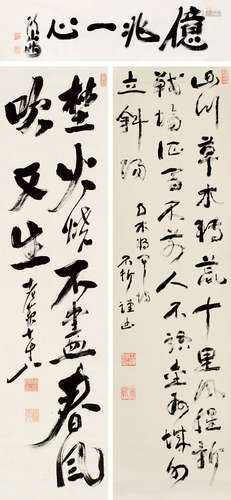 億兆一心
山川草木轉荒涼十里風腥新
戰場征馬不前人不語金州城外
立斜陽
乃木將軍詩
野火燒不盡春風
吹又生